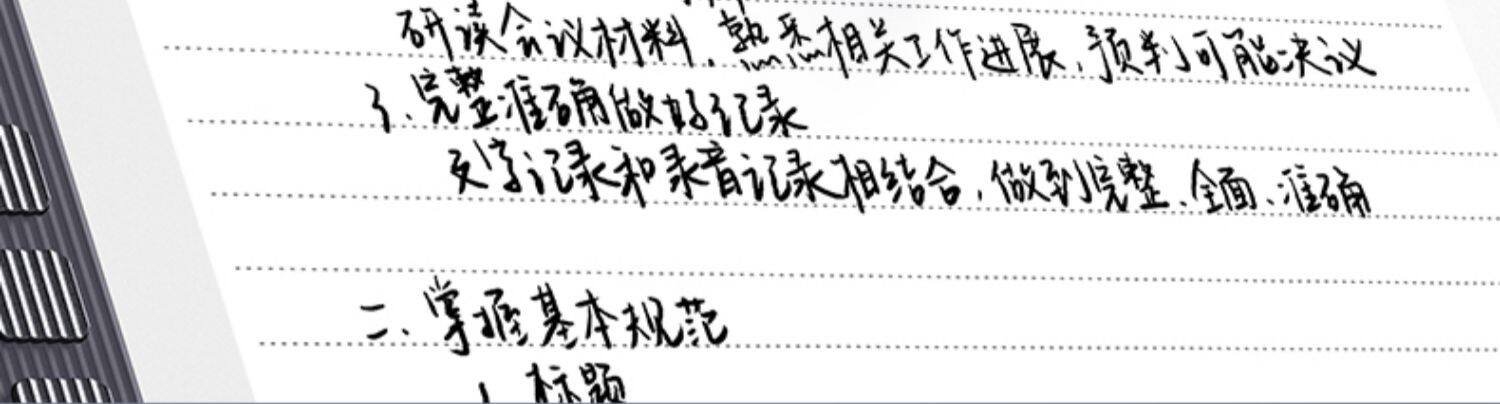 研读会议材料,熟悉相关工作进展,预判可能决议
3.完整准确做好记录
文字记录和录音记录相结合,做到完整、全面、准确
二、掌握基本规范
1.标题